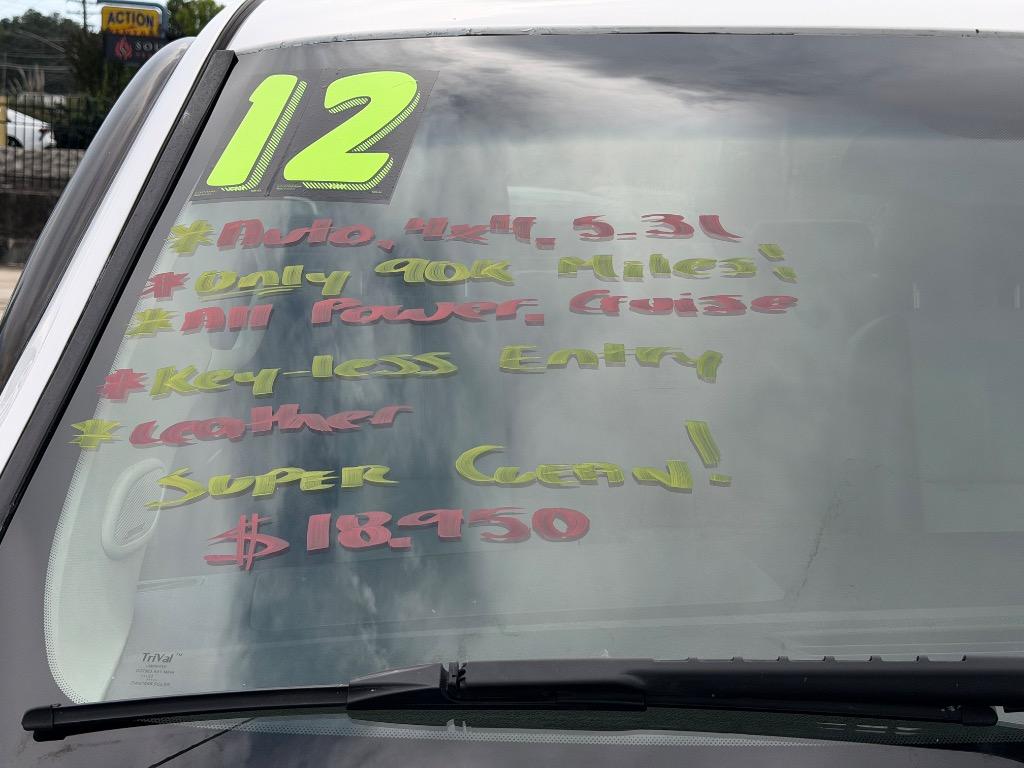 ACTION
12
*Auto, 4x4, 5.3L
*Only 90K Miles!
*All Power, Cruise
*Key-less Entry
*Leather
Super Clean!
$18,950
TriVal™